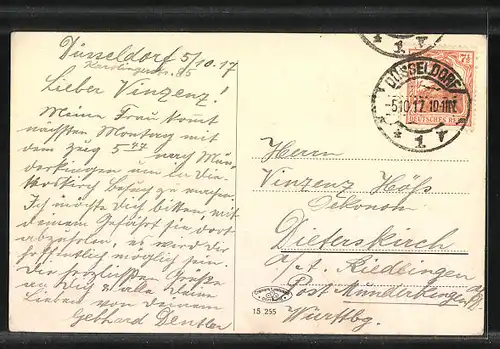 Düsseldorf 5/10.17
Karolingerstr. 95
Lieber Vinzenz!
Meine Frau komt
nächsten Montag mit
dem Zug 5 47 nach Mun-
derkingen um in Die-
terskirch Besuch zu machen.
Ich möchte dich bitten, mit
deinem Gefährt sie dort
abzuholen, es wird dir
hoffentlich möglich sein.
Die herzlichsten Grüße
an Dich & alle deine
Lieben von deinem
Gebhard Dentler
DÜSSELDORF
-5.10.17. 10-11N.
* 1 r
* 1 r
7½
DEUTSCHES REICH
Herrn
Vinzenz Höfs
Ökonom
Dieterskirch
O/A. Riedlingen
Post Munderkingen
Württbg.
15 255